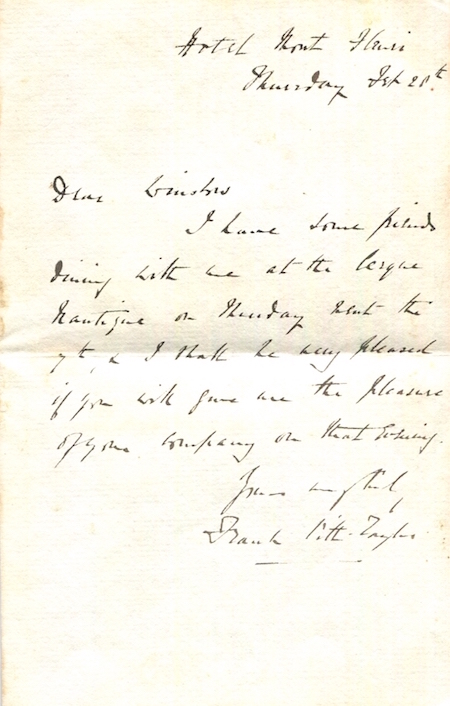 Hotel Mont Fleuri
Thursday Feb 28th.
Dear Winslow
I have some friends
dining with me at the Cerque
Nautique on Thursday next the
7th, & I shall be very pleased
if you will give me the pleasure
of your company on that Evening.
Yours
Frank Pitt-Taylor